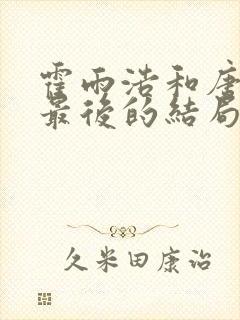 霍雨浩和唐
最後的結局
久米田康治